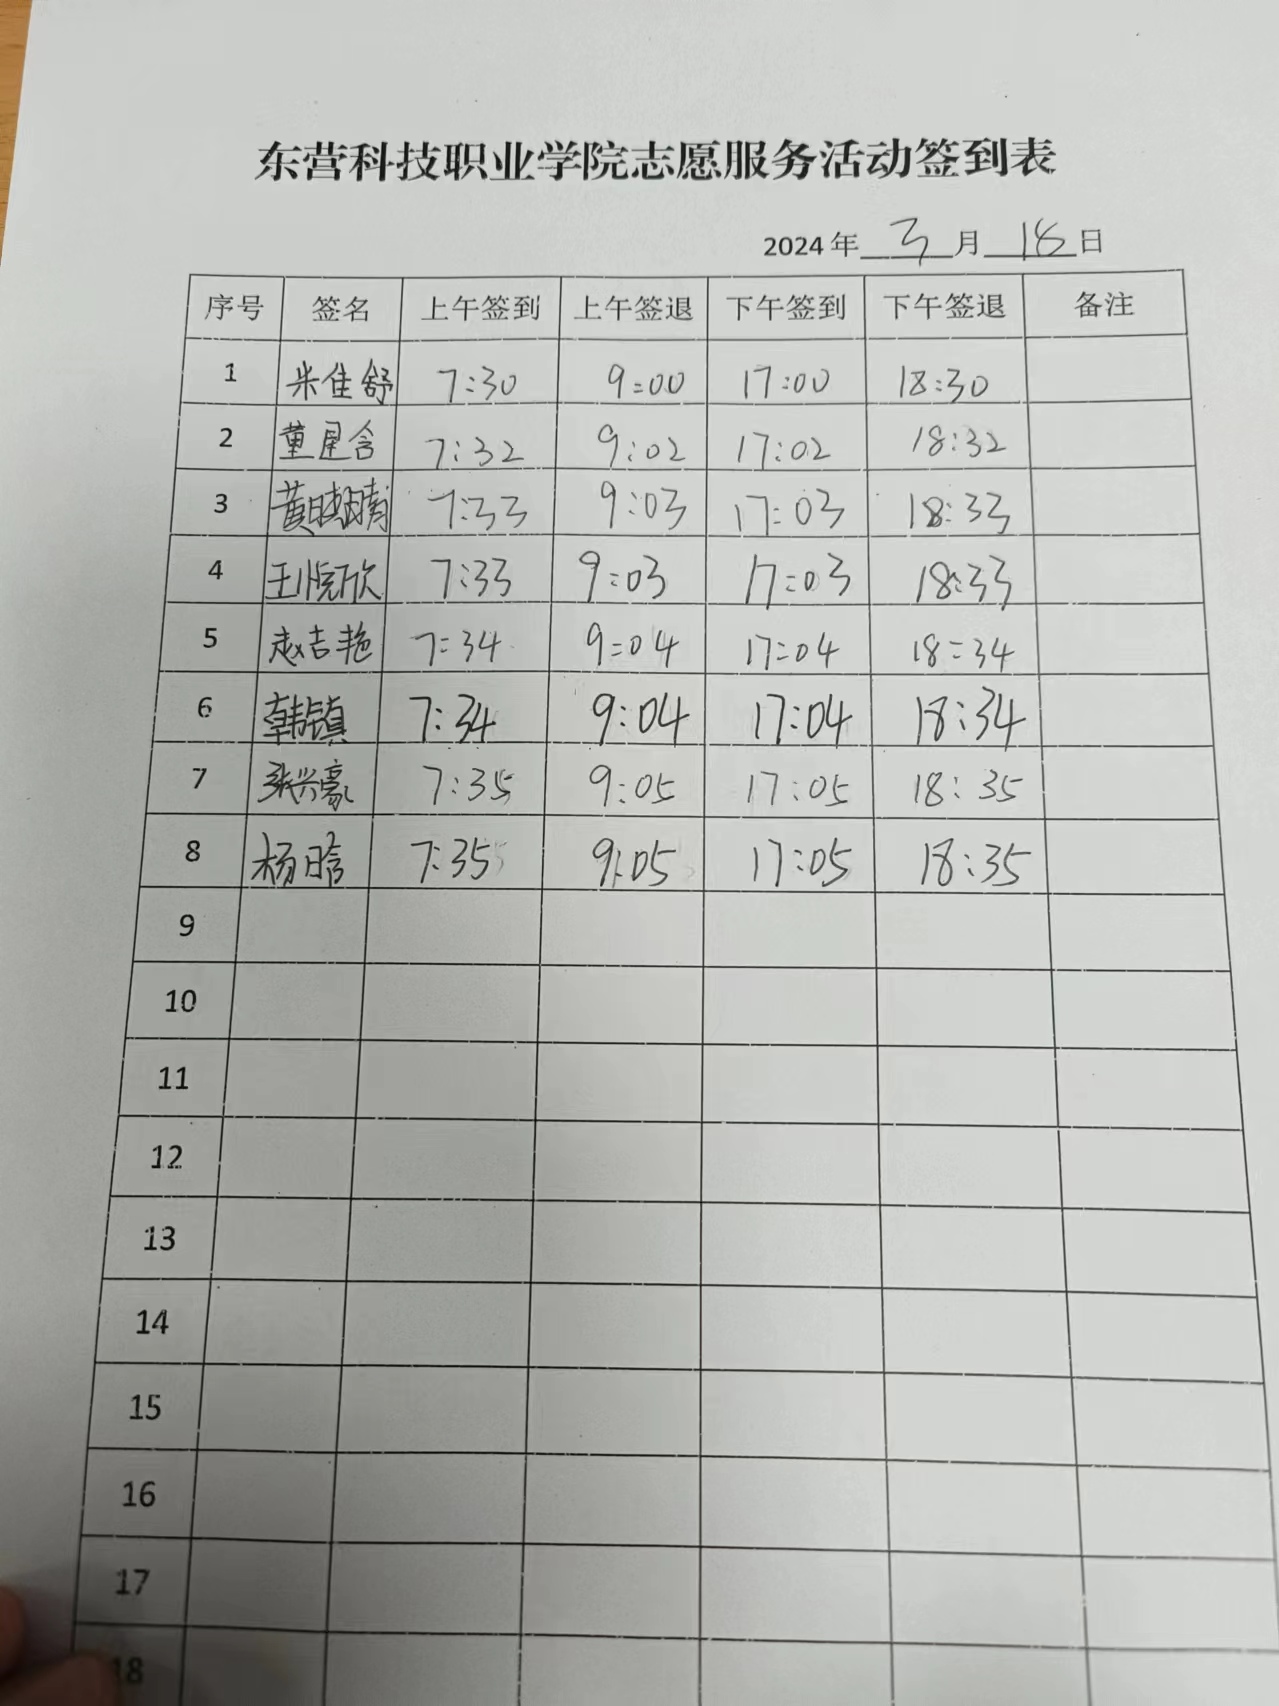 东营科技职业学院志愿服务活动签到表
2024 年 3 月 18 日
序号 签名 上午签到 上午签退 下午签到 下午签退 备注
1 米佳舒 7:30 9:00 17:00 18:30
2 董星含 7:32 9:02 17:02 18:32
3 7:33 9:03 17:03 18:33
4 王悦欣 7:33 9:03 17:03 18:33
5 赵吉艳 7:34 9:04 17:04 18:34
6 韩镇 7:34 9:04 17:04 18:34
7 张兴豪 7:35 9:05 17:05 18:35
8 杨晗 7:35 9:05 17:05 18:35
9
10
11
12
13
14
15
16
17
18